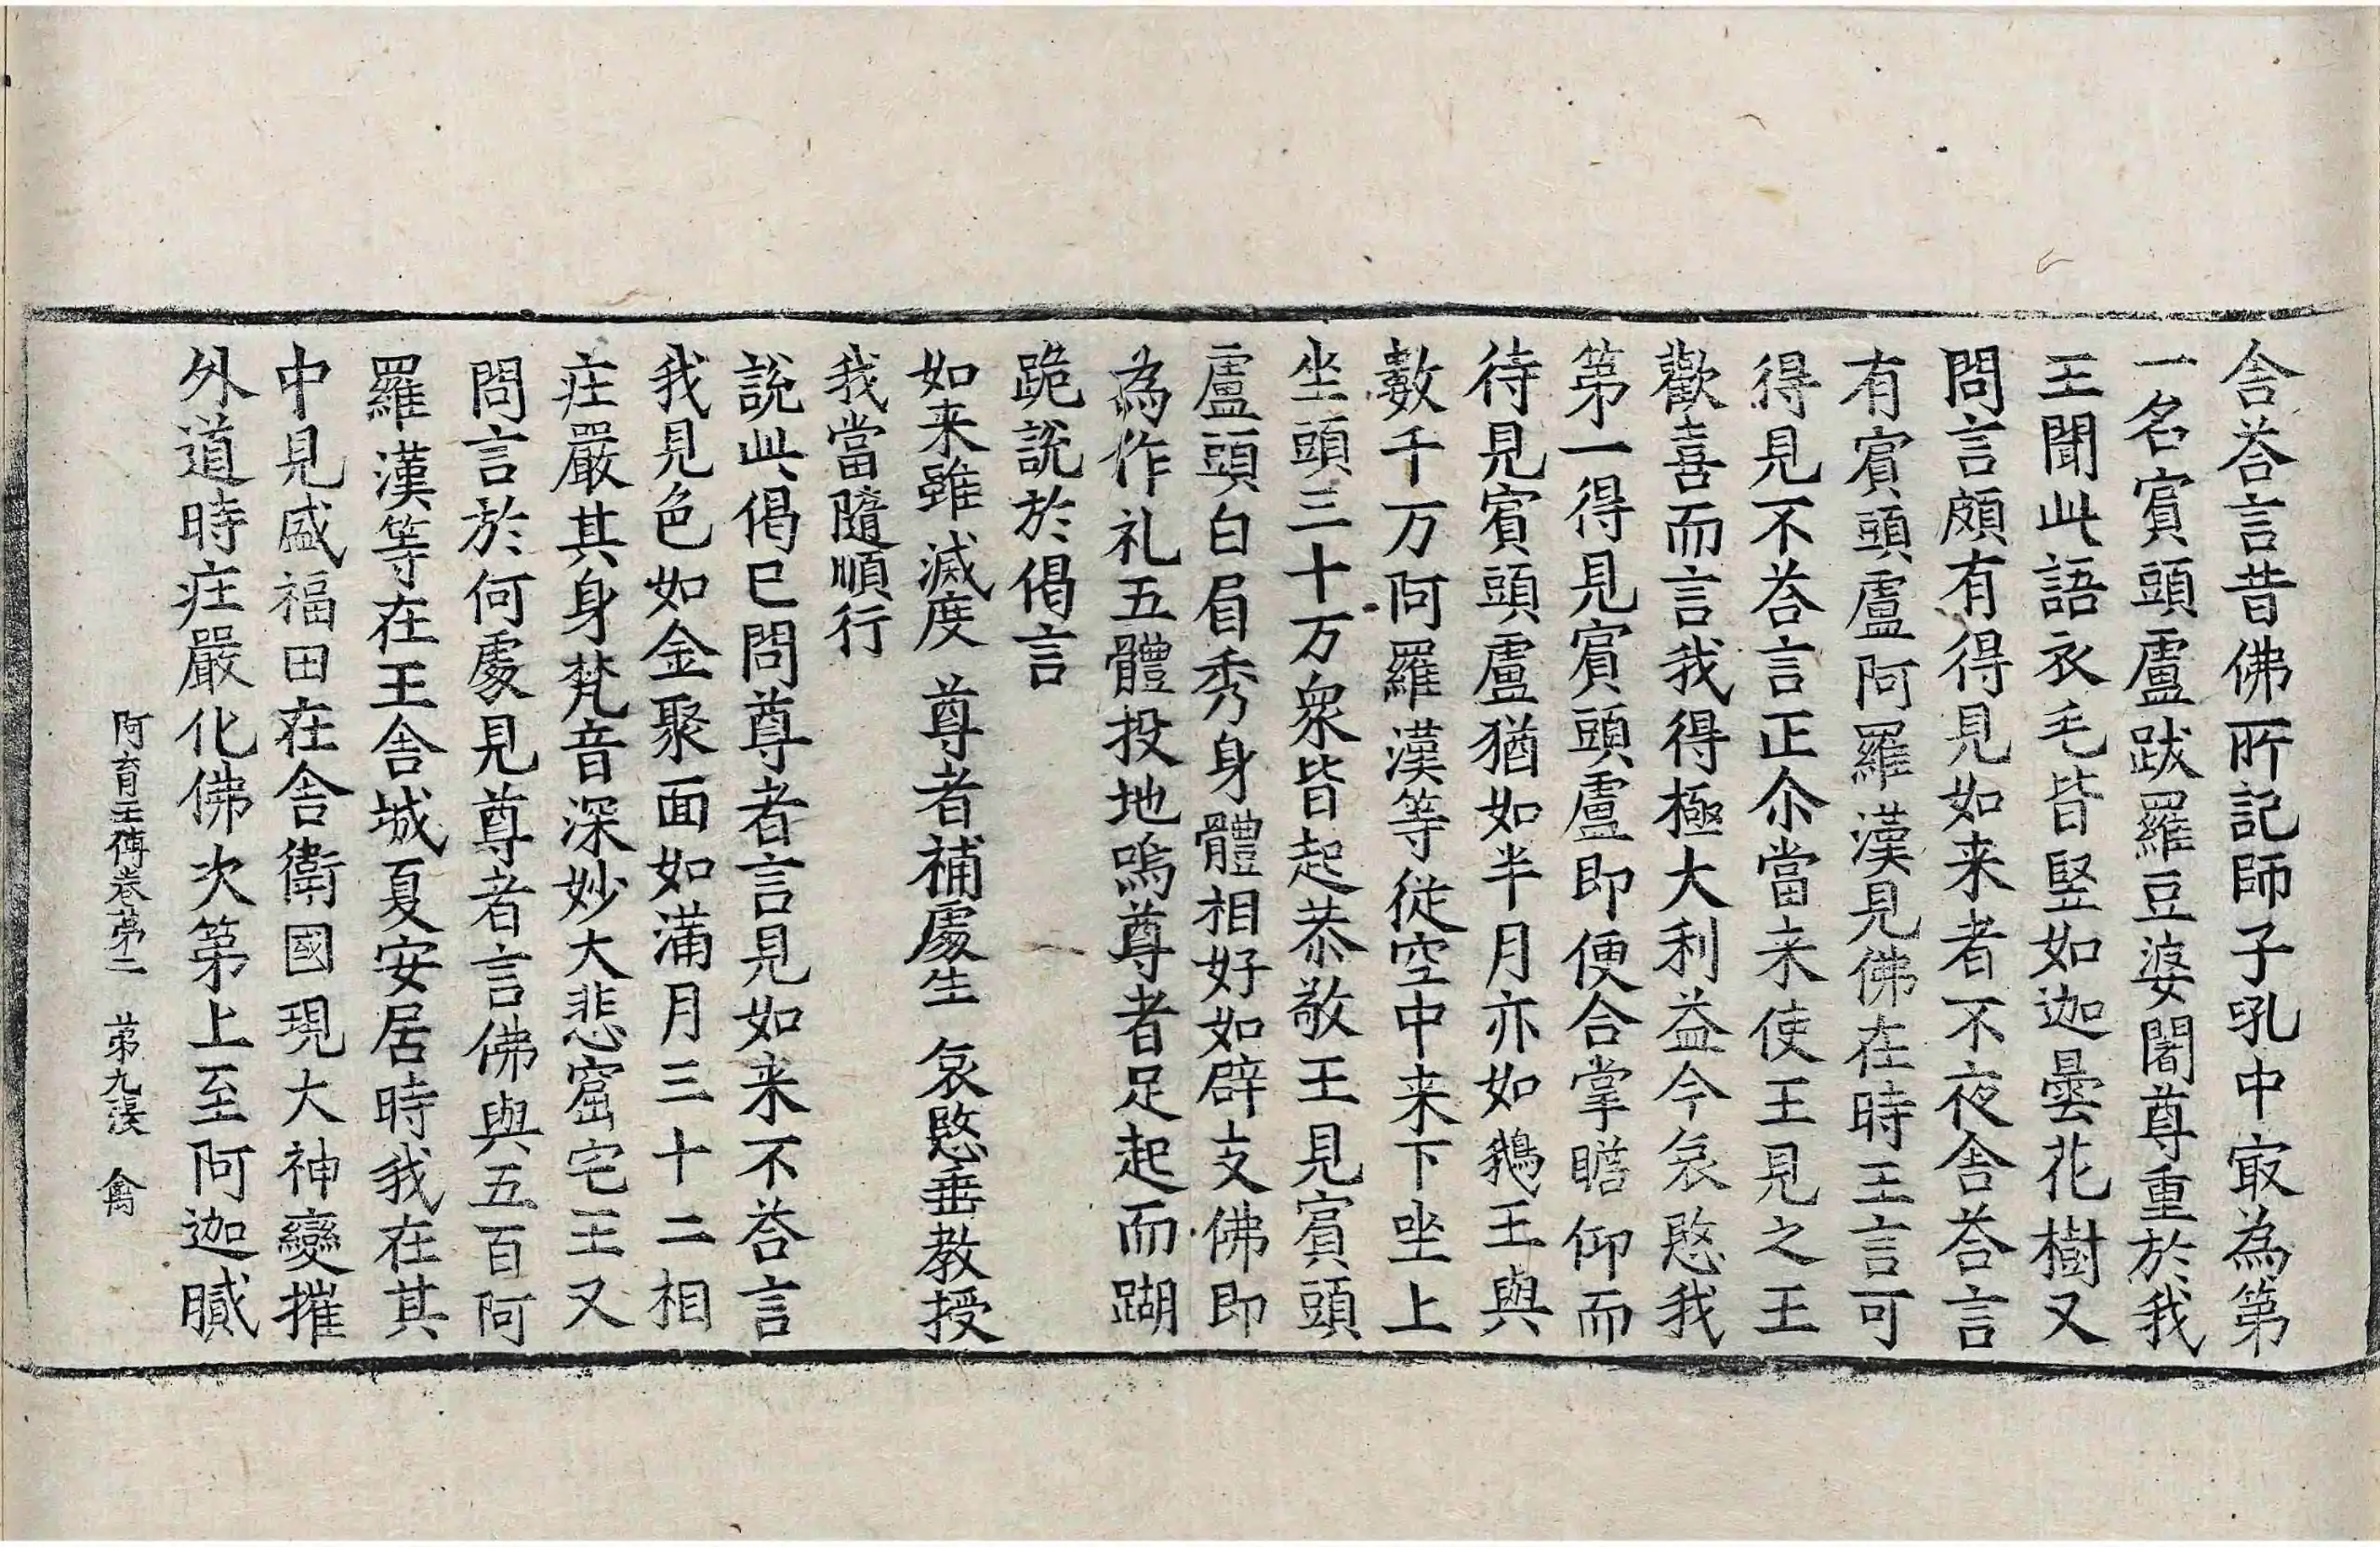 舍荅言昔佛所記師子吼中㝡為第
一名賔頭盧跋羅豆婆闍尊重於我
王聞此語衣毛皆竪如迦曇花樹又
問言頗有得見如来者不夜舍荅言
有賔頭盧阿羅漢見佛在時王言可
得見不荅言正尒當来使王見之王
歡喜而言我得極大利益今哀愍我
第一得見賔頭盧即便合掌瞻仰而
待見賔頭盧猶如半月亦如鵝王與
數千万阿羅漢等從空中来下坐上
坐頭三十万衆皆起恭敬王見賔頭
盧頭白眉秀身體相好如辟支佛即
為作礼五體投地嗚尊者足起而䠒
跪說於偈言
如来雖滅度　尊者補處生　哀愍垂教授
我當隨順行
說此偈已問尊者言見如来不荅言
我見色如金聚面如滿月三十二相
庄嚴其身梵音深妙大悲窟宅王又
問言於何處見尊者言佛與五百阿
羅漢等在王舍城夏安居時我在其
中見盛福田在舍衛國現大神變摧
外道時庄嚴化佛次第上至阿迦膩
阿育王傳卷第二　第九張　禽